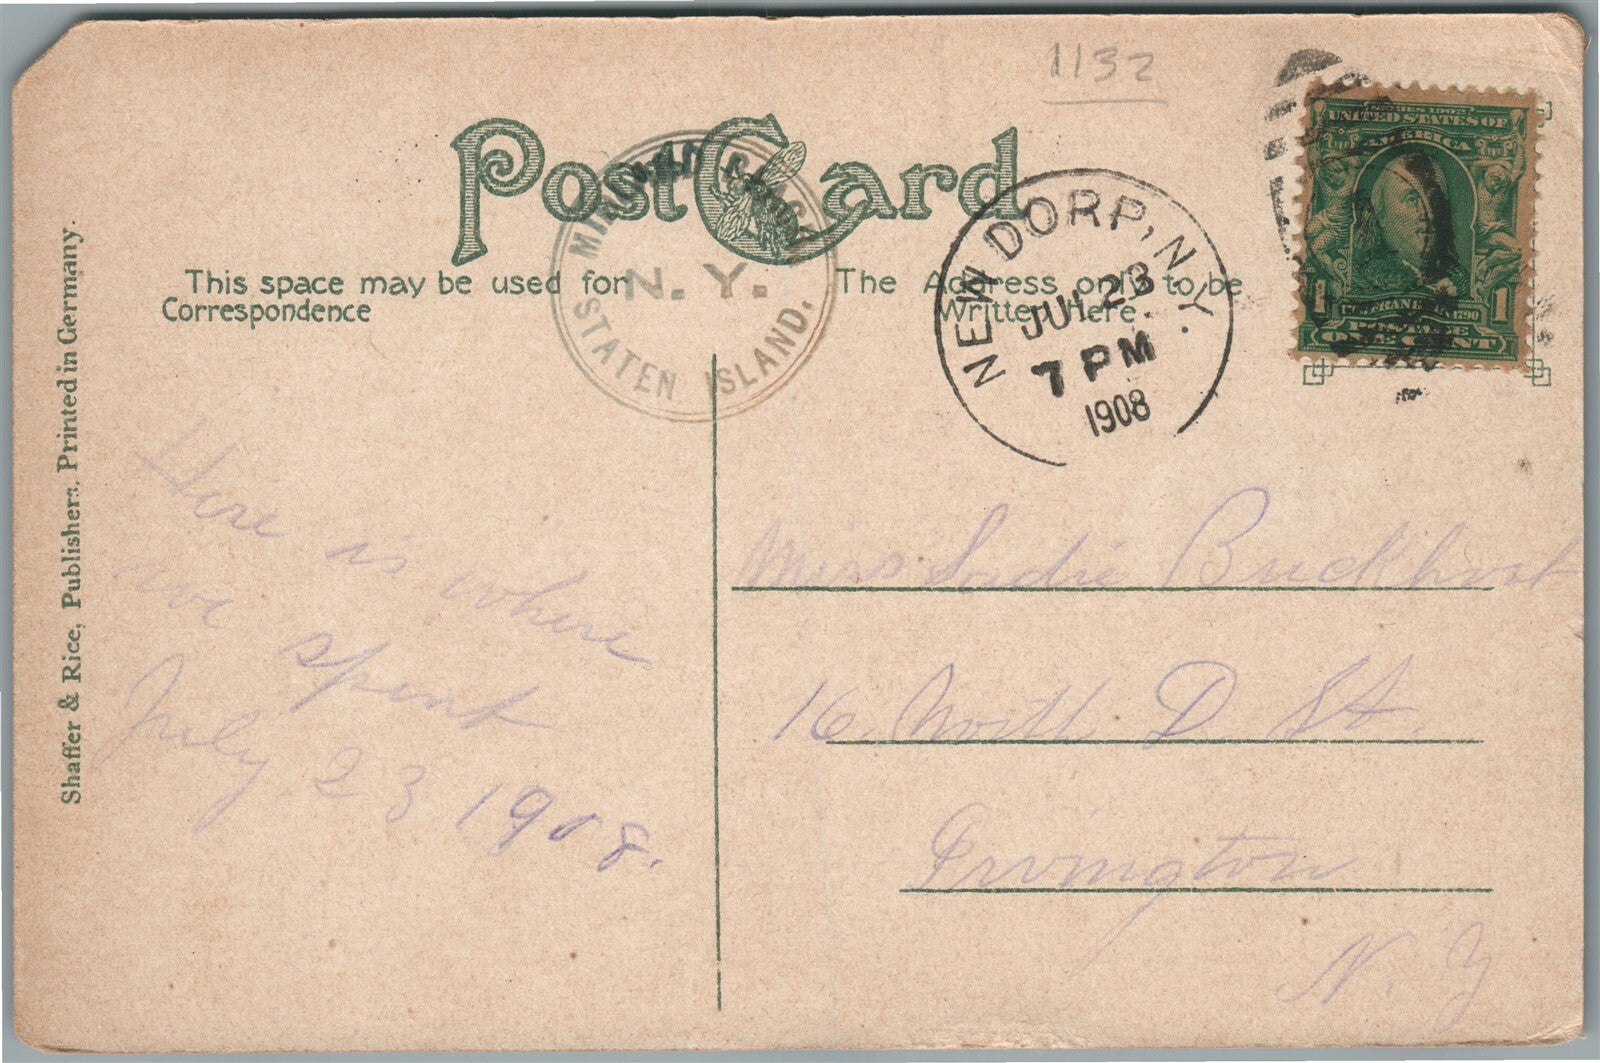 1132
Post Card
MIDLAND BEACH
N. Y.
STATEN ISLAND,
NEW DORP, N.Y.
JUL 23
7 PM
1908
UNITED STATES OF
AMERICA
1 1
POSTAGE
ONE CENT
This space may be used for
Correspondence
The Address only to be
Written Here.
Shaffer & Rice, Publishers, Printed in Germany.
Here is where
we spent
July 23 1908.
Miss Sadie Buckhout
16 North D St.
Irvington
N. Y